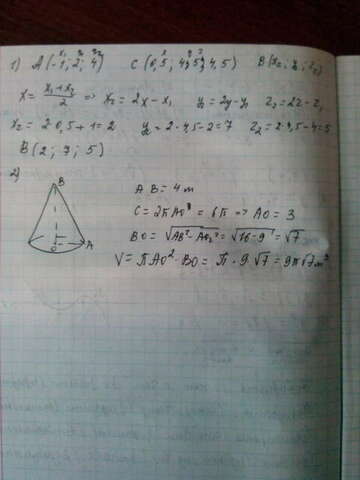 x₁ y₁ z₁ x y z
1) A(-1; 2; 4) C(0,5; 4,5; 4,5) B(x₂; y₂; z₂)
x = x₁+x₂/2 => x₂ = 2x - x₁ y₂ = 2y - y₁ z₂ = 2z - z₁
x₂ = 2·0,5+1 = 2 y₂ = 2·4,5-2 = 7 z₂ = 2·4,5-4 = 5
B(2; 7; 5)
2)
B
O
A
AB = 4 м
C = 2πAO = 6π => AO = 3
BO = √AB²-AO² = √16-9 = √7
V = πAO²·BO = π·9√7 = 9π√7 м³